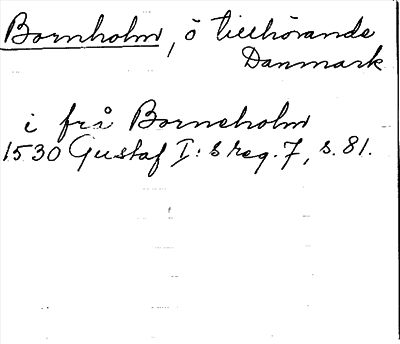 Bornholm, ö tillhörande
Danmark
i från Borneholm
1530 Gustaf I:s reg. 7, s. 81.